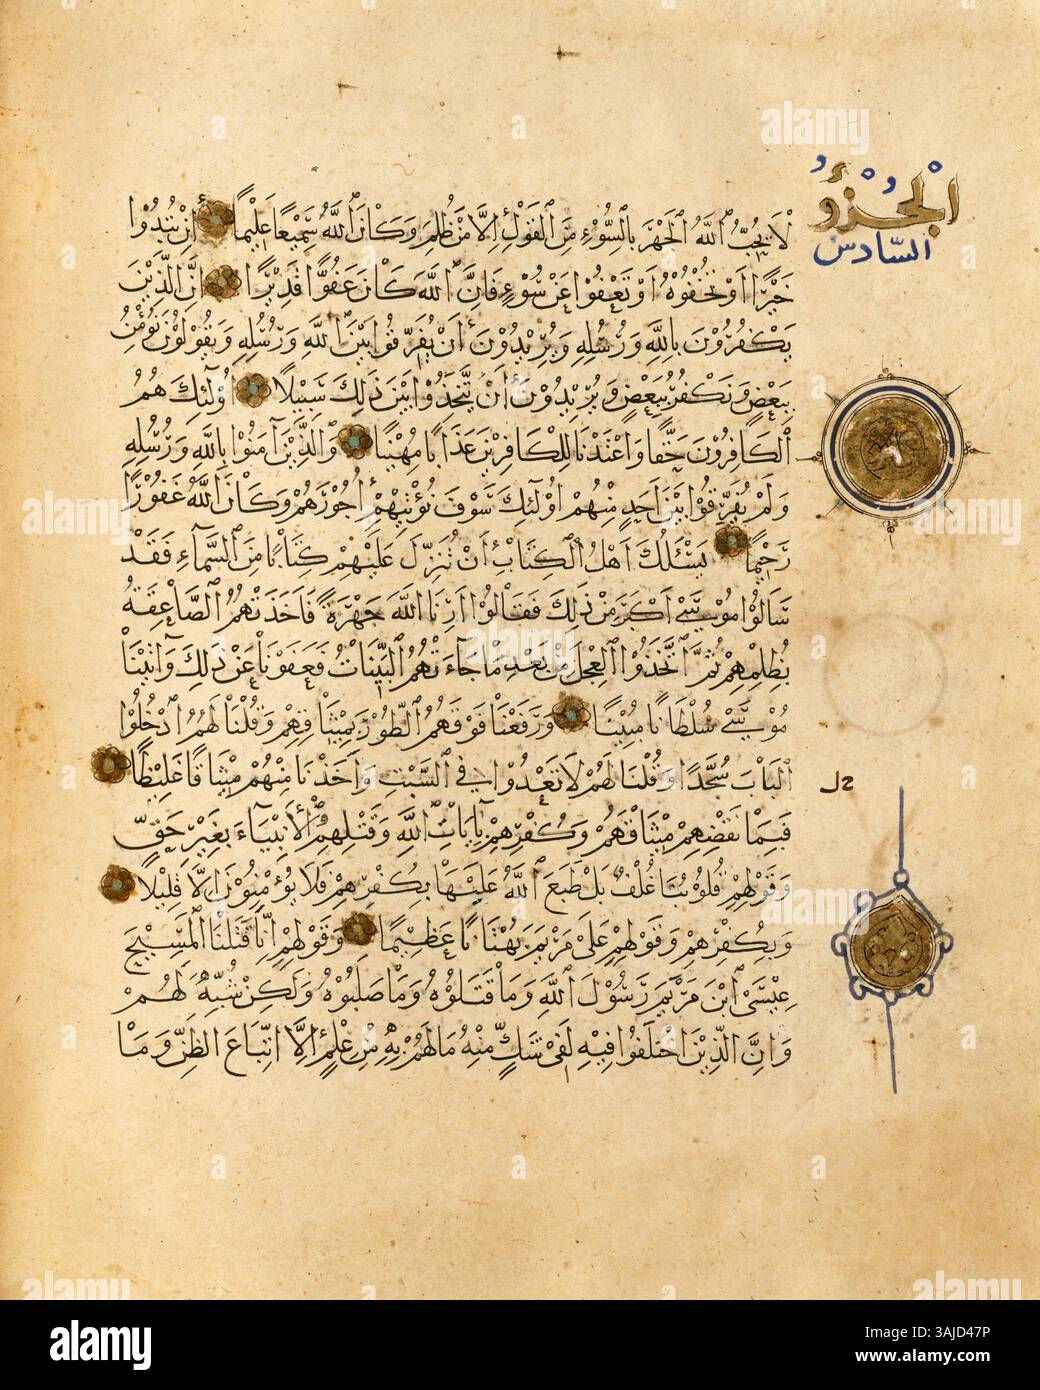 الجزء
السادس
لَا يُحِبُّ ٱللَّهُ ٱلْجَهْرَ بِالسُّوْءِ مِنَ ٱلْقَوْلِ إِلَّا مَنْ ظُلِمَ وَكَانَ ٱللَّهُ سَمِيْعًا عَلِيْمًا إِنْ تُبْدُوْا
خَيْرًا أَوْ تُخْفُوْهُ أَوْ تَعْفُوْا عَنْ سُوْءٍ فَإِنَّ ٱللَّهَ كَانَ عَفُوًّا قَدِيْرًا إِنَّ الَّذِيْنَ
يَكْفُرُوْنَ بِاللَّهِ وَرُسُلِهِ وَيُرِيْدُوْنَ أَنْ يُفَرِّقُوْا بَيْنَ ٱللَّهِ وَرُسُلِهِ وَيَقُوْلُوْنَ نُؤْمِنُ
بِبَعْضٍ وَنَكْفُرُ بِبَعْضٍ وَيُرِيْدُوْنَ أَنْ يَتَّخِذُوْا بَيْنَ ذٰلِكَ سَبِيْلًا أُوْلٰئِكَ هُمُ
ٱلْكَافِرُوْنَ حَقًّا وَأَعْتَدْنَا لِلْكَافِرِيْنَ عَذَابًا مُهِيْنًا وَالَّذِيْنَ آمَنُوْا بِاللَّهِ وَرُسُلِهِ
وَلَمْ يُفَرِّقُوْا بَيْنَ أَحَدٍ مِنْهُمْ أُوْلٰئِكَ سَوْفَ نُؤْتِيْهِمْ أُجُوْرَهُمْ وَكَانَ ٱللَّهُ غَفُوْرًا
رَحِيْمًا يَسْئَلُكَ أَهْلُ ٱلْكِتَابِ أَنْ تُنَزِّلَ عَلَيْهِمْ كِتَابًا مِنَ ٱلسَّمَآءِ فَقَدْ
سَأَلُوْا مُوْسَىٰ أَكْبَرَ مِنْ ذٰلِكَ فَقَالُوْا أَرِنَا اللَّهَ جَهْرَةً فَأَخَذَتْهُمُ ٱلصَّاعِقَةُ
بِظُلْمِهِمْ ثُمَّ ٱتَّخَذُوْا ٱلْعِجْلَ مِنْ بَعْدِ مَا جَآءَتْهُمُ الْبَيِّنَاتُ فَعَفَوْنَا عَنْ ذٰلِكَ وَآتَيْنَا
مُوْسَىٰ سُلْطَانًا مُبِيْنًا وَرَفَعْنَا فَوْقَهُمُ ٱلطُّوْرَ بِمِيْثَاقِهِمْ وَقُلْنَا لَهُمُ ٱدْخُلُوْا
الْبَابَ سُجَّدًا وَقُلْنَا لَهُمْ لَا تَعْدُوْا فِي ٱلسَّبْتِ وَأَخَذْنَا مِنْهُمْ مِيْثَاقًا غَلِيْظًا
فَبِمَا نَقْضِهِمْ مِيْثَاقَهُمْ وَكُفْرِهِمْ بِآيَاتِ ٱللَّهِ وَقَتْلِهِمُ ٱلْأَنْبِيَآءَ بِغَيْرِ حَقٍّ
وَقَوْلِهِمْ قُلُوْبُنَا غُلْفٌ بَلْ طَبَعَ ٱللَّهُ عَلَيْهَا بِكُفْرِهِمْ فَلَا يُؤْمِنُوْنَ إِلَّا قَلِيْلًا
وَبِكُفْرِهِمْ وَقَوْلِهِمْ عَلَىٰ مَرْيَمَ بُهْتَانًا عَظِيْمًا وَقَوْلِهِمْ إِنَّا قَتَلْنَا ٱلْمَسِيْحَ
عِيْسَىٰ ٱبْنَ مَرْيَمَ رَسُوْلَ ٱللَّهِ وَمَا قَتَلُوْهُ وَمَا صَلَبُوْهُ وَلَكِنْ شُبِّهَ لَهُمْ
وَإِنَّ الَّذِيْنَ اخْتَلَفُوْا فِيْهِ لَفِيْ شَكٍّ مِنْهُ مَا لَهُمْ بِهِ مِنْ عِلْمٍ إِلَّا اتِّبَاعَ الظَّنِّ وَمَا
alamy
Image ID: 3AJD47P
www.alamy.com